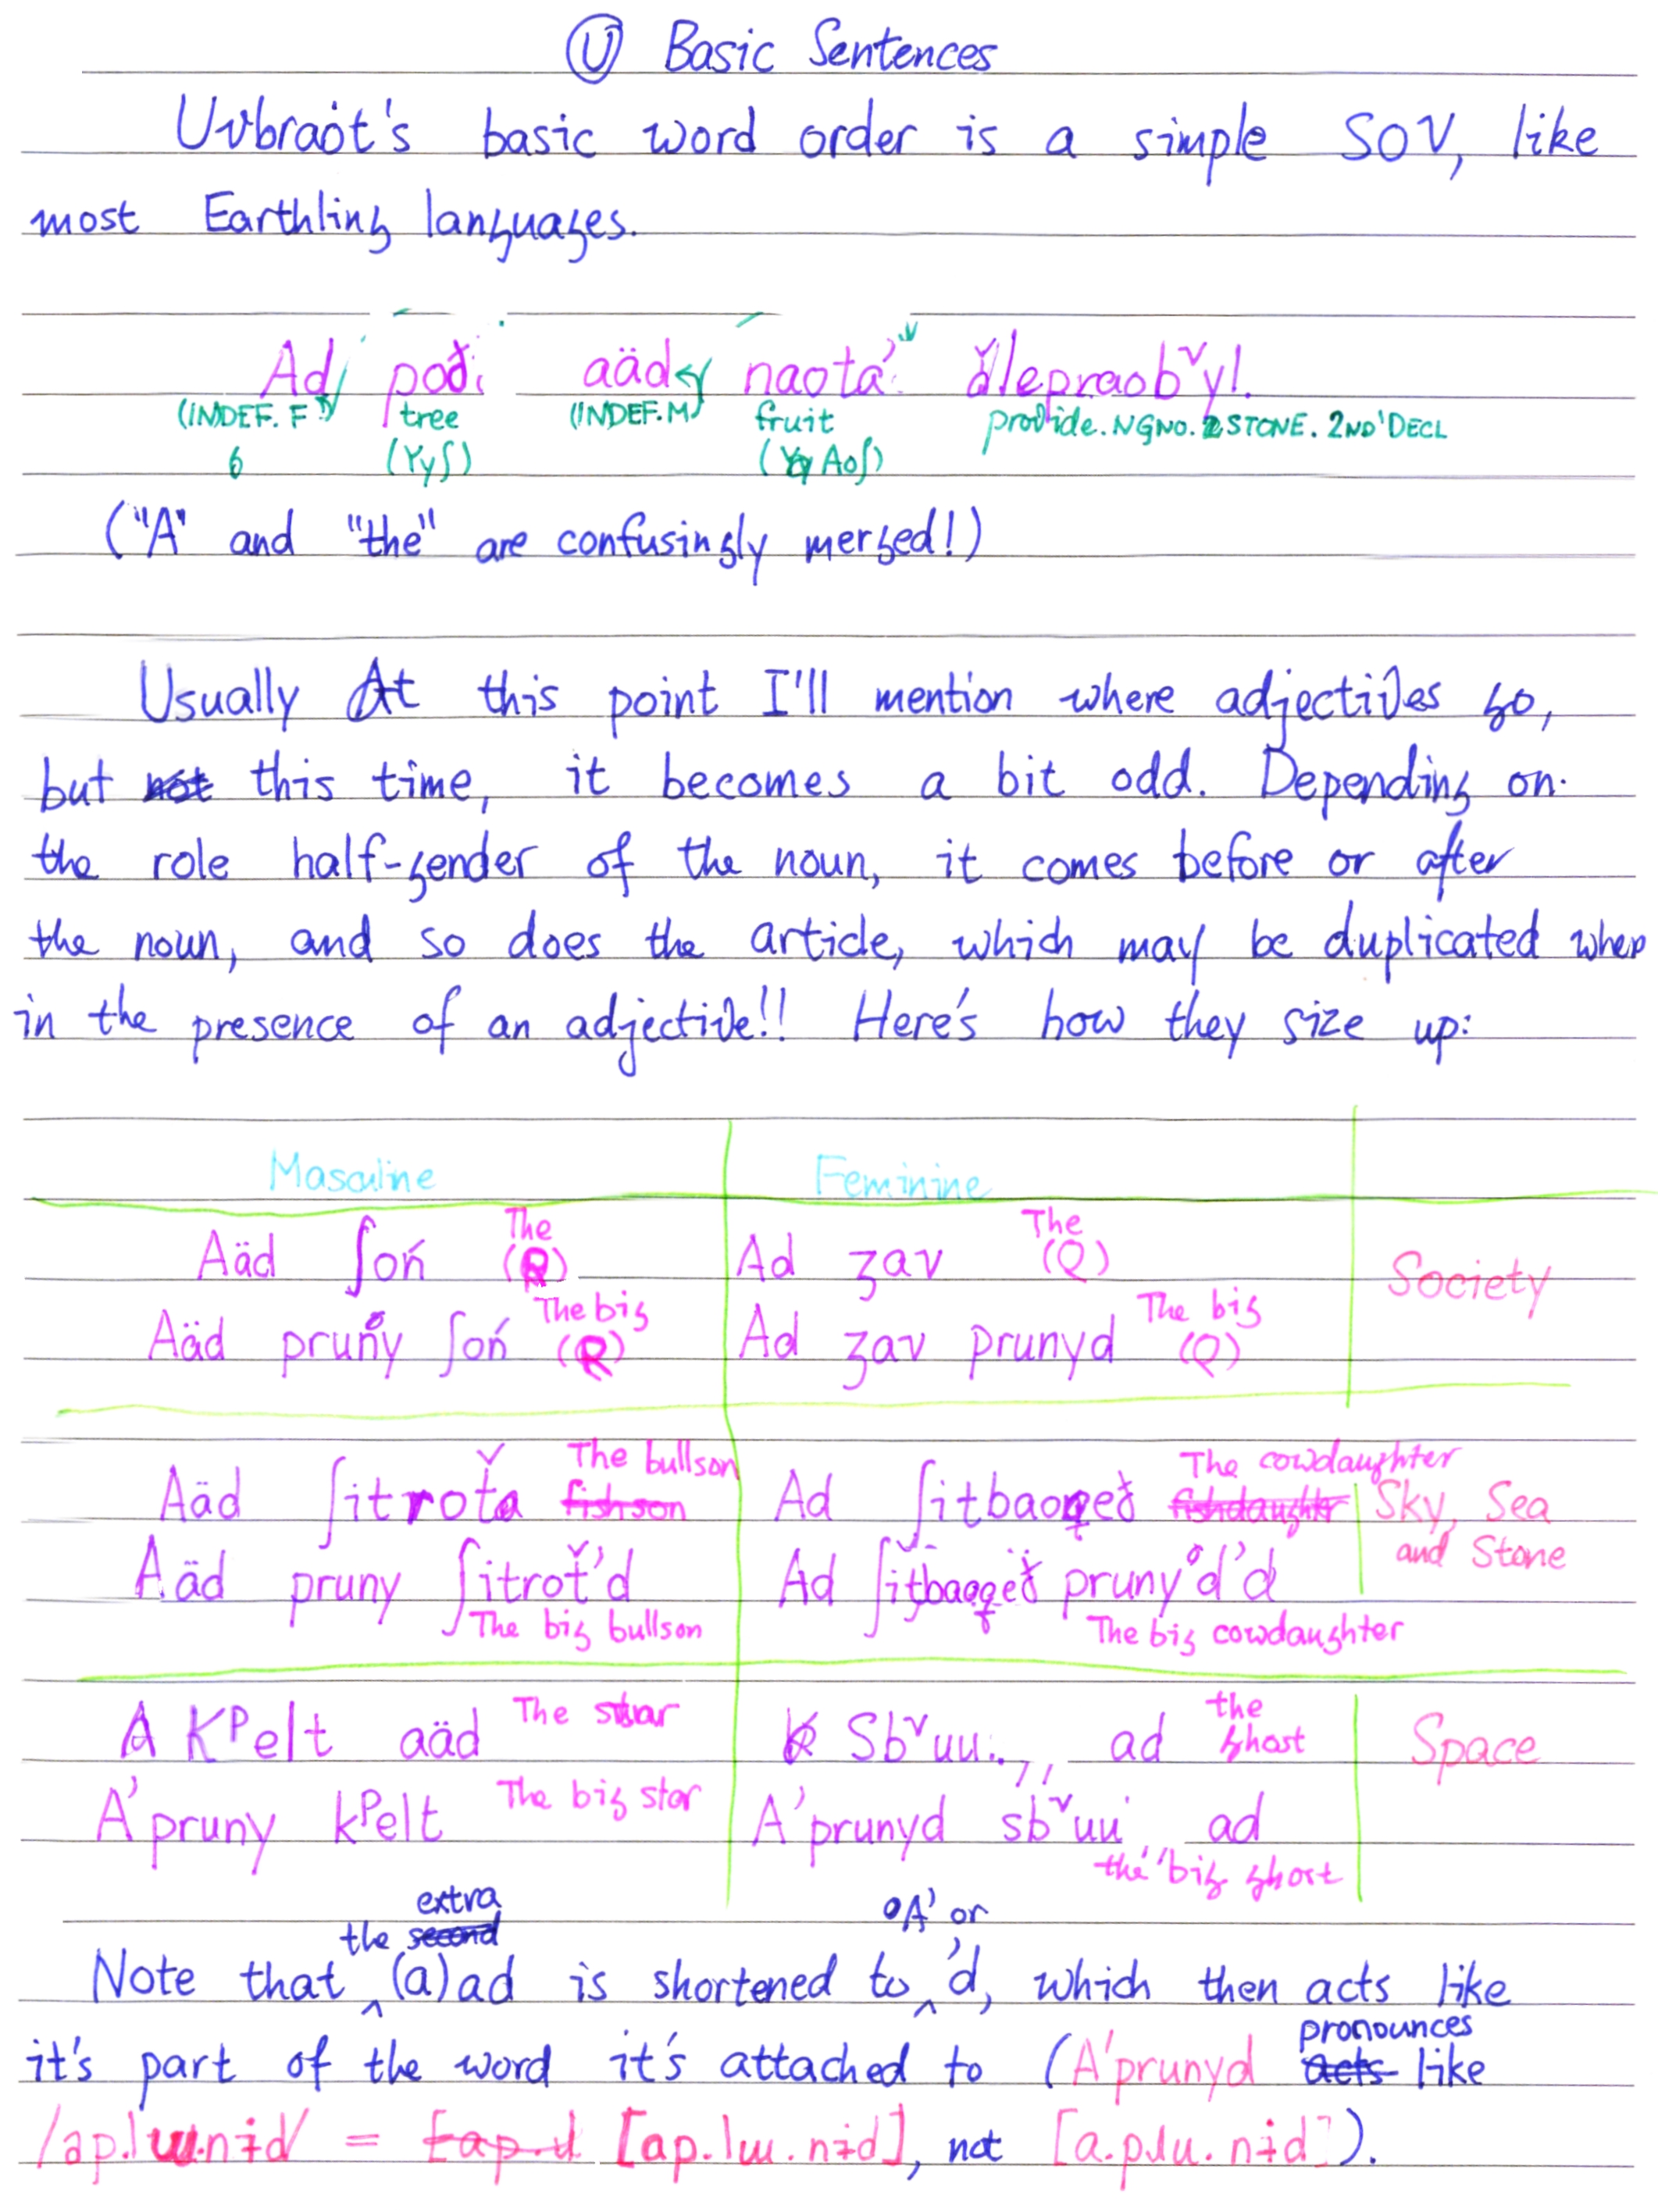 Ⓤ Basic Sentences
Uvbraȯt's basic word order is a simple SOV, like
most Earthling languages.
Ad poði aäd naotá ð̌lepraobᵛy!.
(INDEF. F) tree (INDEF. M) fruit provide. NGNO. STONE. 2ND'DECL
6 (Yyʃ) (Aoʃ)
("A" and "the" are confusingly merged!)
Usually At this point I'll mention where adjectives go,
but not this time, it becomes a bit odd. Depending on
the role half-gender of the noun, it comes before or after
the noun, and so does the article, which may be duplicated when
in the presence of an adjective!! Here's how they size up:
Masculine Feminine
Aäd ʃoń The (R) Ad ʒav The (Q) Society
Aäd pruny ʃoń The big (R) Ad ʒav prunyd The big (Q)
Aäd ʃitroťa The bullson fishson Ad ʃitbaoqeð The cowdaughter fishdaughter Sky, Sea
and Stone
Aäd pruny ʃitroť'd Ad ʃitbaoqeð pruny'd'd
The big bullson The big cowdaughter
A Kᴾelt aäd The star Sbᵛuu.,, ad the ghost Space
A'pruny kᴾelt The big star A'prunyd sbᵛuu ad
the big ghost
extra A' or
the second
Note that (a)ad is shortened to 'd, which then acts like
pronounces
it's part of the word it's attached to (A'prunyd acts like
/ap.lɯ.nɨd/ = [ap.lɯ.nɨd], not [a.pɹu.nɨd]).